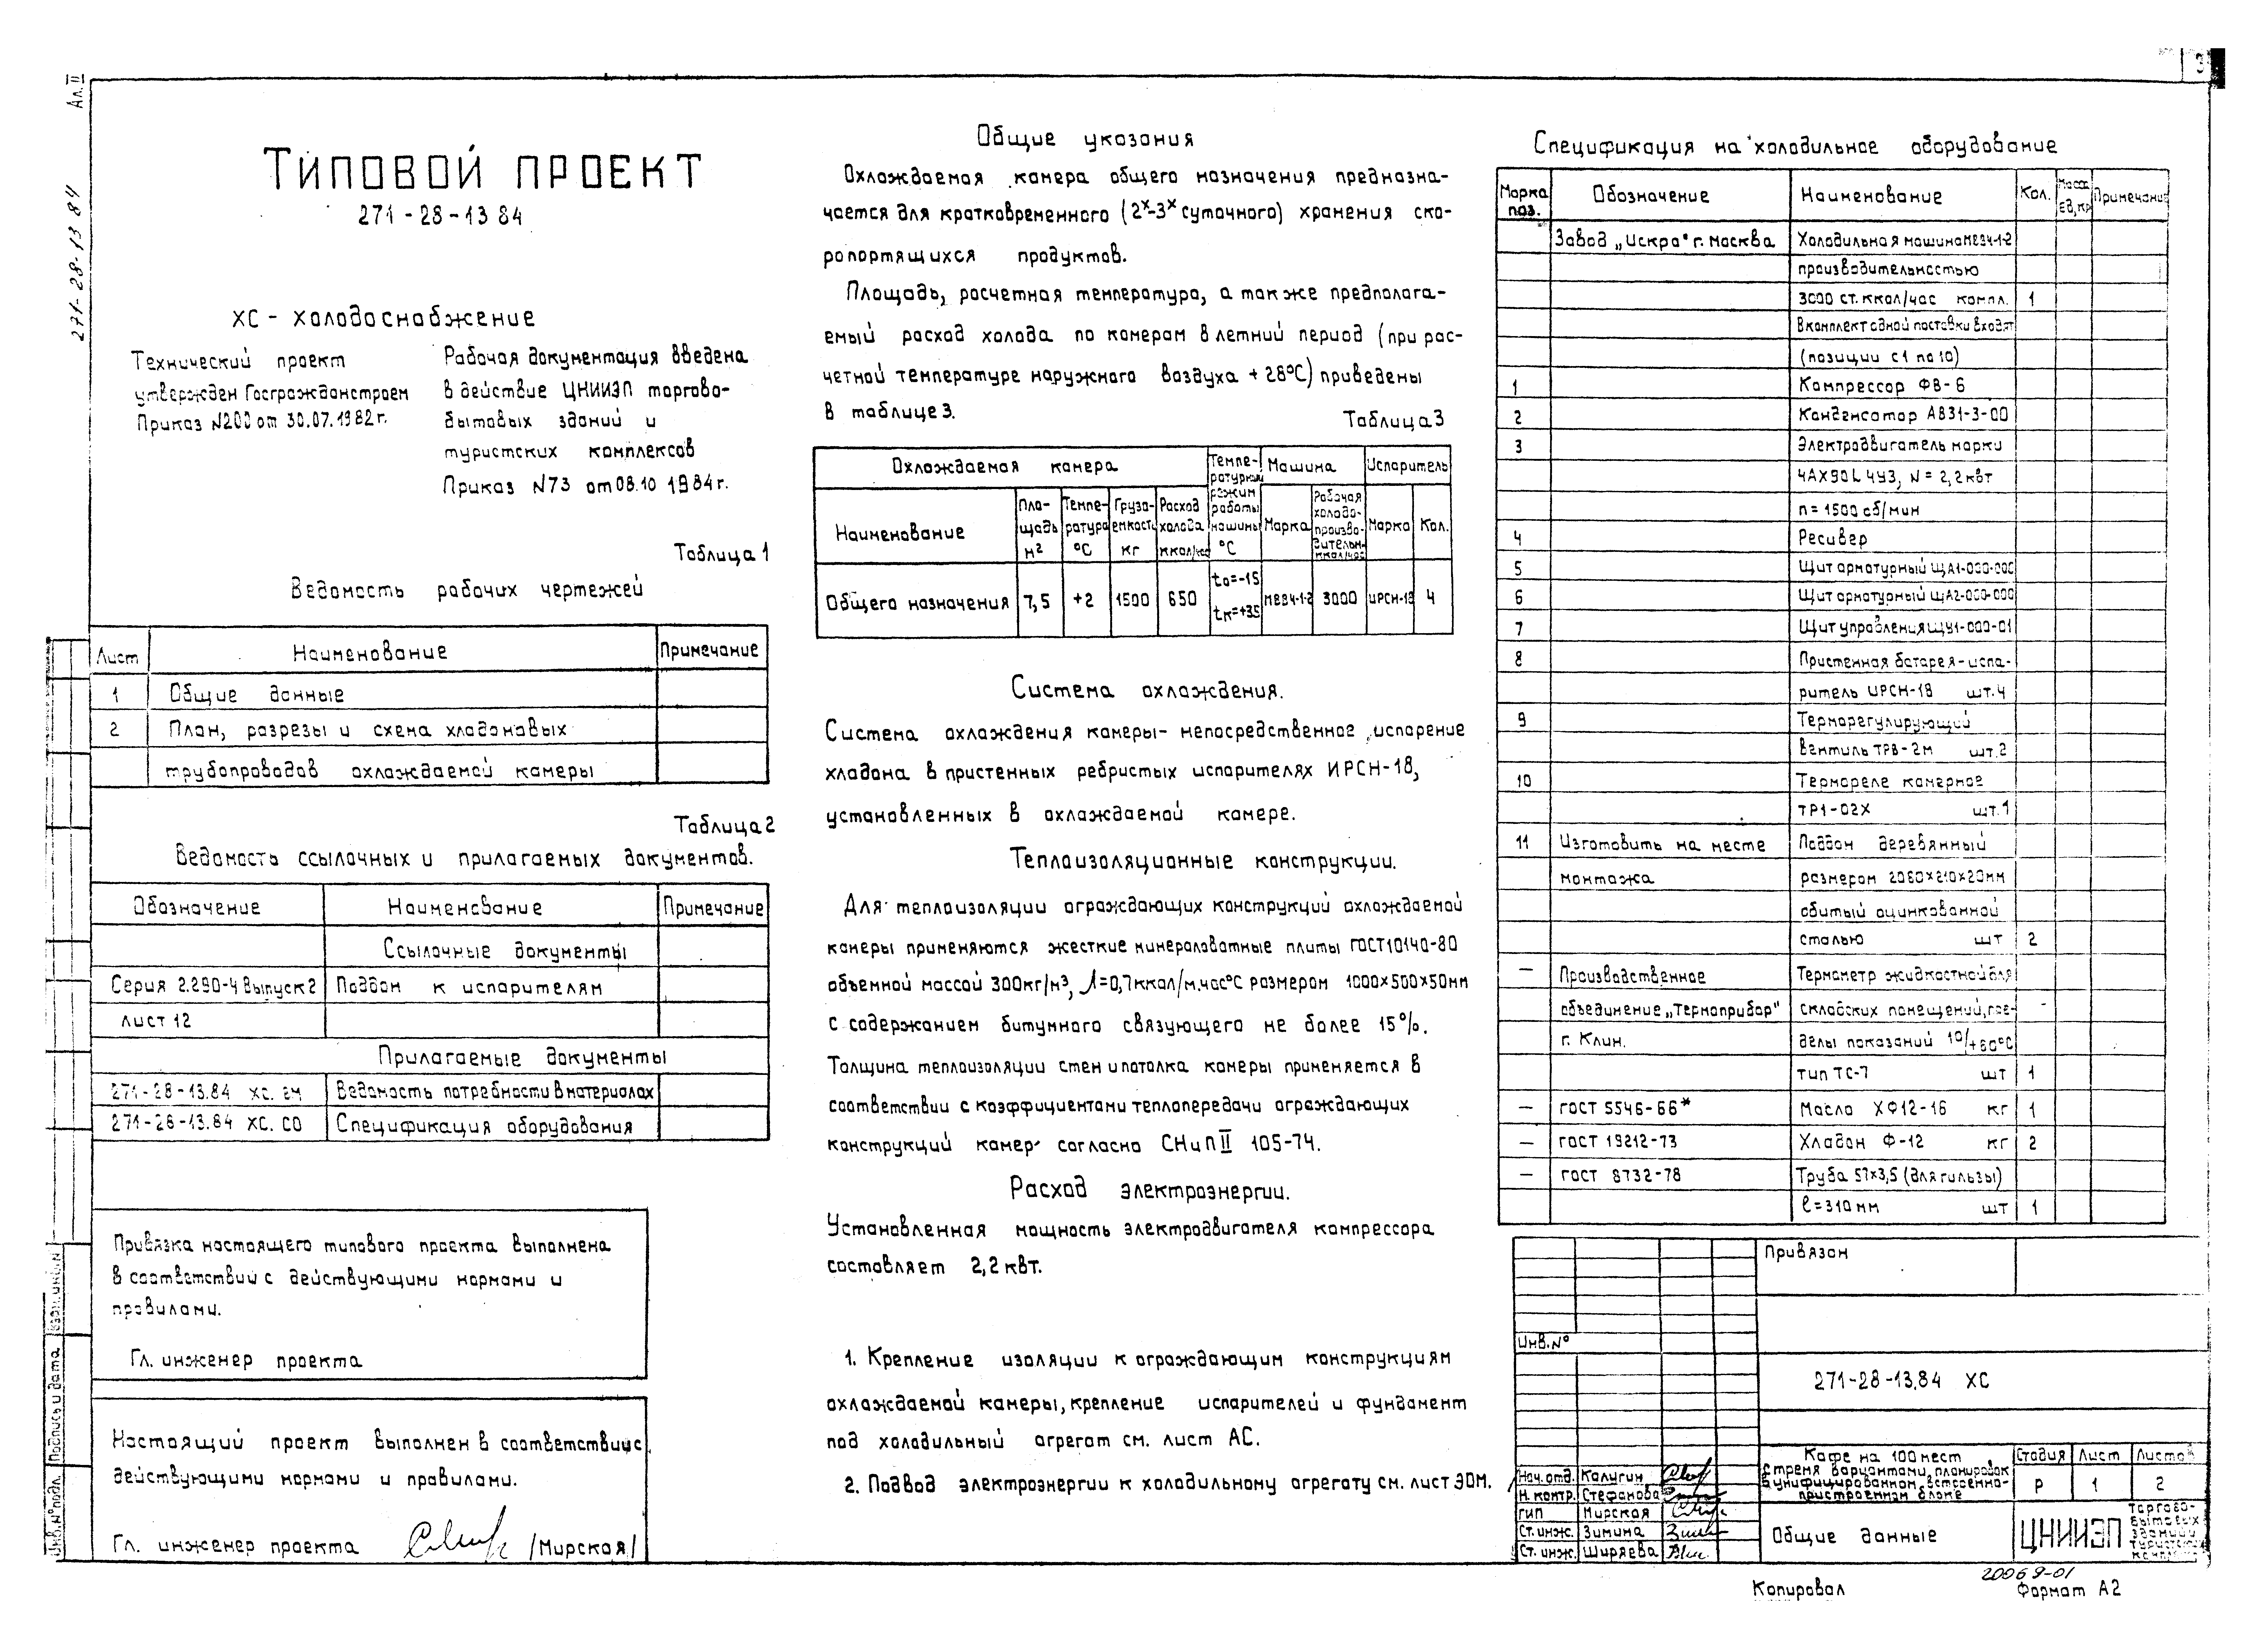 Ал. III
3
271-28-13 84
ТИПОВОЙ ПРОЕКТ
271-28-13 84
ХС - холодоснабжение
Технический проект
утвержден Госгражданстроем
Приказ №200 от 30.07.1982г.
Рабочая документация введена
в действие ЦНИИЭП торгово-
бытовых зданий и
туристских комплексов
Приказ №73 от 08.10 1984г.
Таблица 1
Ведомость рабочих чертежей
Лист Наименование Примечание
1 Общие данные
2 План, разрезы и схема хладоновых
трубопроводов охлаждаемой камеры
Таблица 2
Ведомость ссылочных и прилагаемых документов.
Обозначение Наименование Примечание
Ссылочные документы
Серия 2.290-4 Выпуск 2 Поддон к испарителям
лист 12
Прилагаемые документы
271-28-13.84 ХС. Ведомость потребности в материалах
271-28-13.84 ХС. СО Спецификация оборудования
Привязка настоящего типового проекта выполнена
в соответствии с действующими нормами и
правилами.
Гл. инженер проекта
Настоящий проект выполнен в соответствии с
действующими нормами и правилами.
Гл. инженер проекта /Мирская/
Общие указания
Охлаждаемая камера общего назначения предназна-
чается для кратковременного (2х-3х суточного) хранения ско-
ропортящихся продуктов.
Площадь, расчетная температура, а также предполага-
емый расход холода по камерам в летний период (при рас-
четной температуре наружного воздуха +28°С) приведены
в таблице 3.
Таблица 3
Охлаждаемая камера Температурный режим работы машины °С Машина Испаритель
Наименование Площадь м² Температура °С Грузоемкость кг Расход холода ккал/час Марка Рабочая холодопроизводительн. ккал/час Марка Кол.
Общего назначения 7,5 +2 1500 650 to=-15 tк=+35 МВВ4-1-2 3000 ИРСН-18 4
Система охлаждения.
Система охлаждения камеры- непосредственное испарение
хладона в пристенных ребристых испарителях ИРСН-18,
установленных в охлаждаемой камере.
Теплоизоляционные конструкции.
Для теплоизоляции ограждающих конструкций охлаждаемой
камеры применяются жесткие минераловатные плиты ГОСТ10140-80
объемной массой 300кг/м³, λ=0,7ккал/м.час°С размером 1000×500×50мм
с содержанием битумного связующего не более 15%.
Толщина теплоизоляции стен и потолка камеры применяется в
соответствии с коэффициентами теплопередачи ограждающих
конструкций камер согласно СНиП II 105-74.
Расход электроэнергии.
Установленная мощность электродвигателя компрессора
составляет 2,2 квт.
1. Крепление изоляции к ограждающим конструкциям
охлаждаемой камеры, крепление испарителей и фундамент
под холодильный агрегат см. лист АС.
2. Подвод электроэнергии к холодильному агрегату см. лист ЭОМ.
Спецификация на холодильное оборудование
Марка поз. Обозначение Наименование Кол. Масса ед, кг Примечание
Завод „Искра" г. Москва Холодильная машина МВВ4-1-2
производительностью
3000 ст. ккал/час компл. 1
В комплект одной поставки входят
(позиции с 1 по 10)
1 Компрессор ФВ-6
2 Конденсатор АВ31-3-00
3 Электродвигатель марки
4АХ90L 4У3, N = 2,2 квт
n = 1500 об/мин
4 Ресивер
5 Щит арматурный ЩА1-000-000
6 Щит арматурный ЩА2-000-000
7 Щит управления ЩУ1-000-01
8 Пристенная батарея-испа-
ритель ИРСН-18 шт. 4
9 Терморегулирующий
вентиль ТРВ-2М шт. 2
10 Термореле камерное
ТР1-02Х шт. 1
11 Изготовить на месте Поддон деревянный
монтажа размером 2060×210×20мм
обитый оцинкованной
сталью шт 2
— Производственное Термометр жидкостной для
объединение „Термоприбор" складских помещений, пре-
г. Клин. делы показаний
тип ТС-7 шт 1
— ГОСТ 5546-66* Масло ХФ12-16 кг 1
— ГОСТ 19212-73 Хладон Ф-12 кг 2
— ГОСТ 8732-78 Труба 57×3,5 (для гильзы)
ℓ=310 мм шт 1
Привязан
Инв. №
271-28-13.84 ХС
Кафе на 100 мест
с тремя вариантами планировок
в унифицированном встроенно-
пристроенном блоке
Стадия Лист Листов
Р 1 2
Нач. отд. Калугин
Н. контр. Стефанова
ГИП Мирская
Ст. инж. Зимина
Ст. инж. Ширяева
Общие данные
ЦНИИЭП
торгово-
бытовых
зданий и
туристских
комплексов
20069-01
Копировал Формат А2
Инв. № подл. Подпись и дата Взам. инв. №